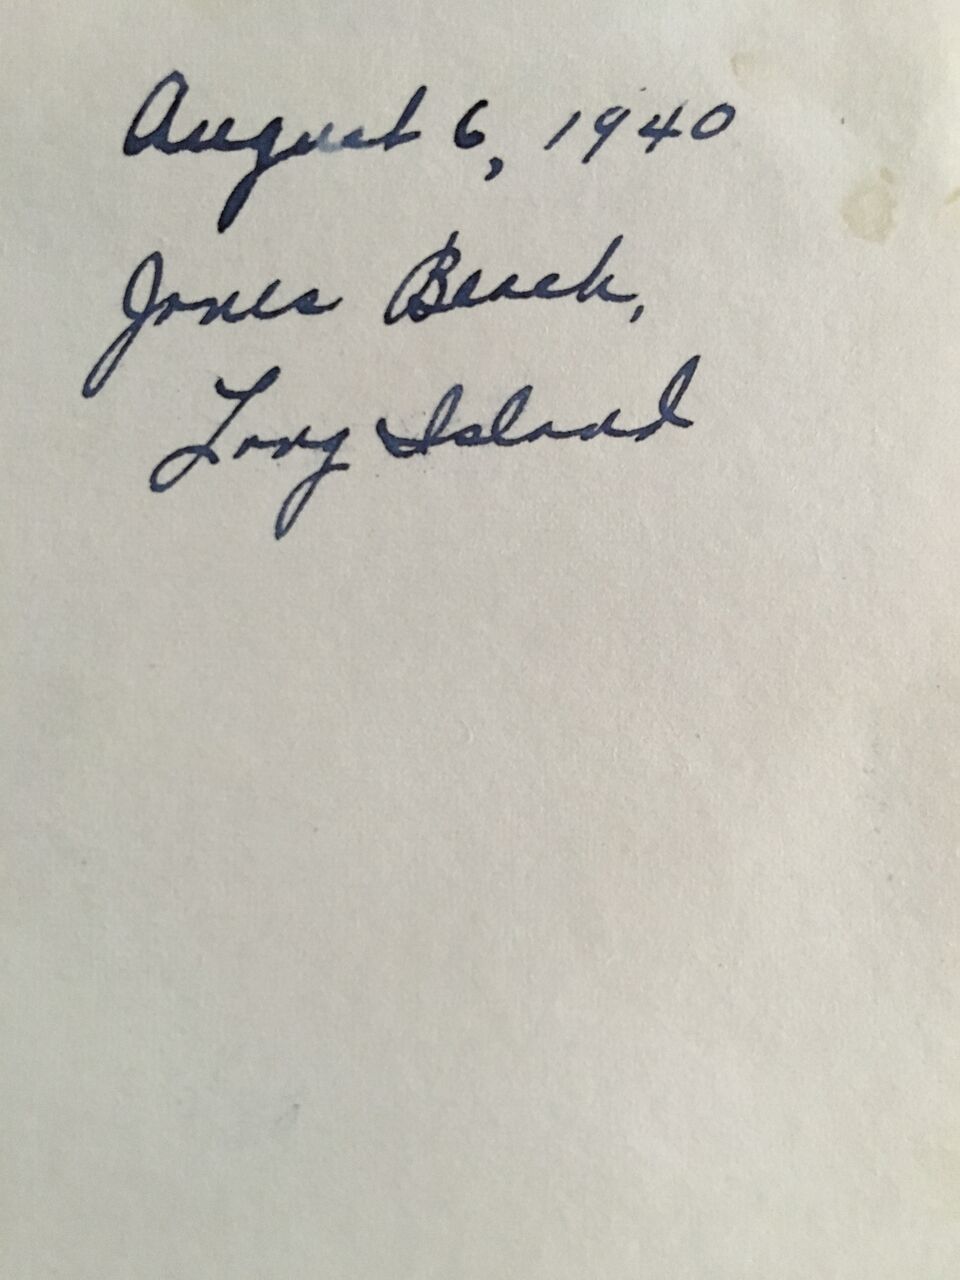 August 6, 1940
Jones Beach,
Long Island